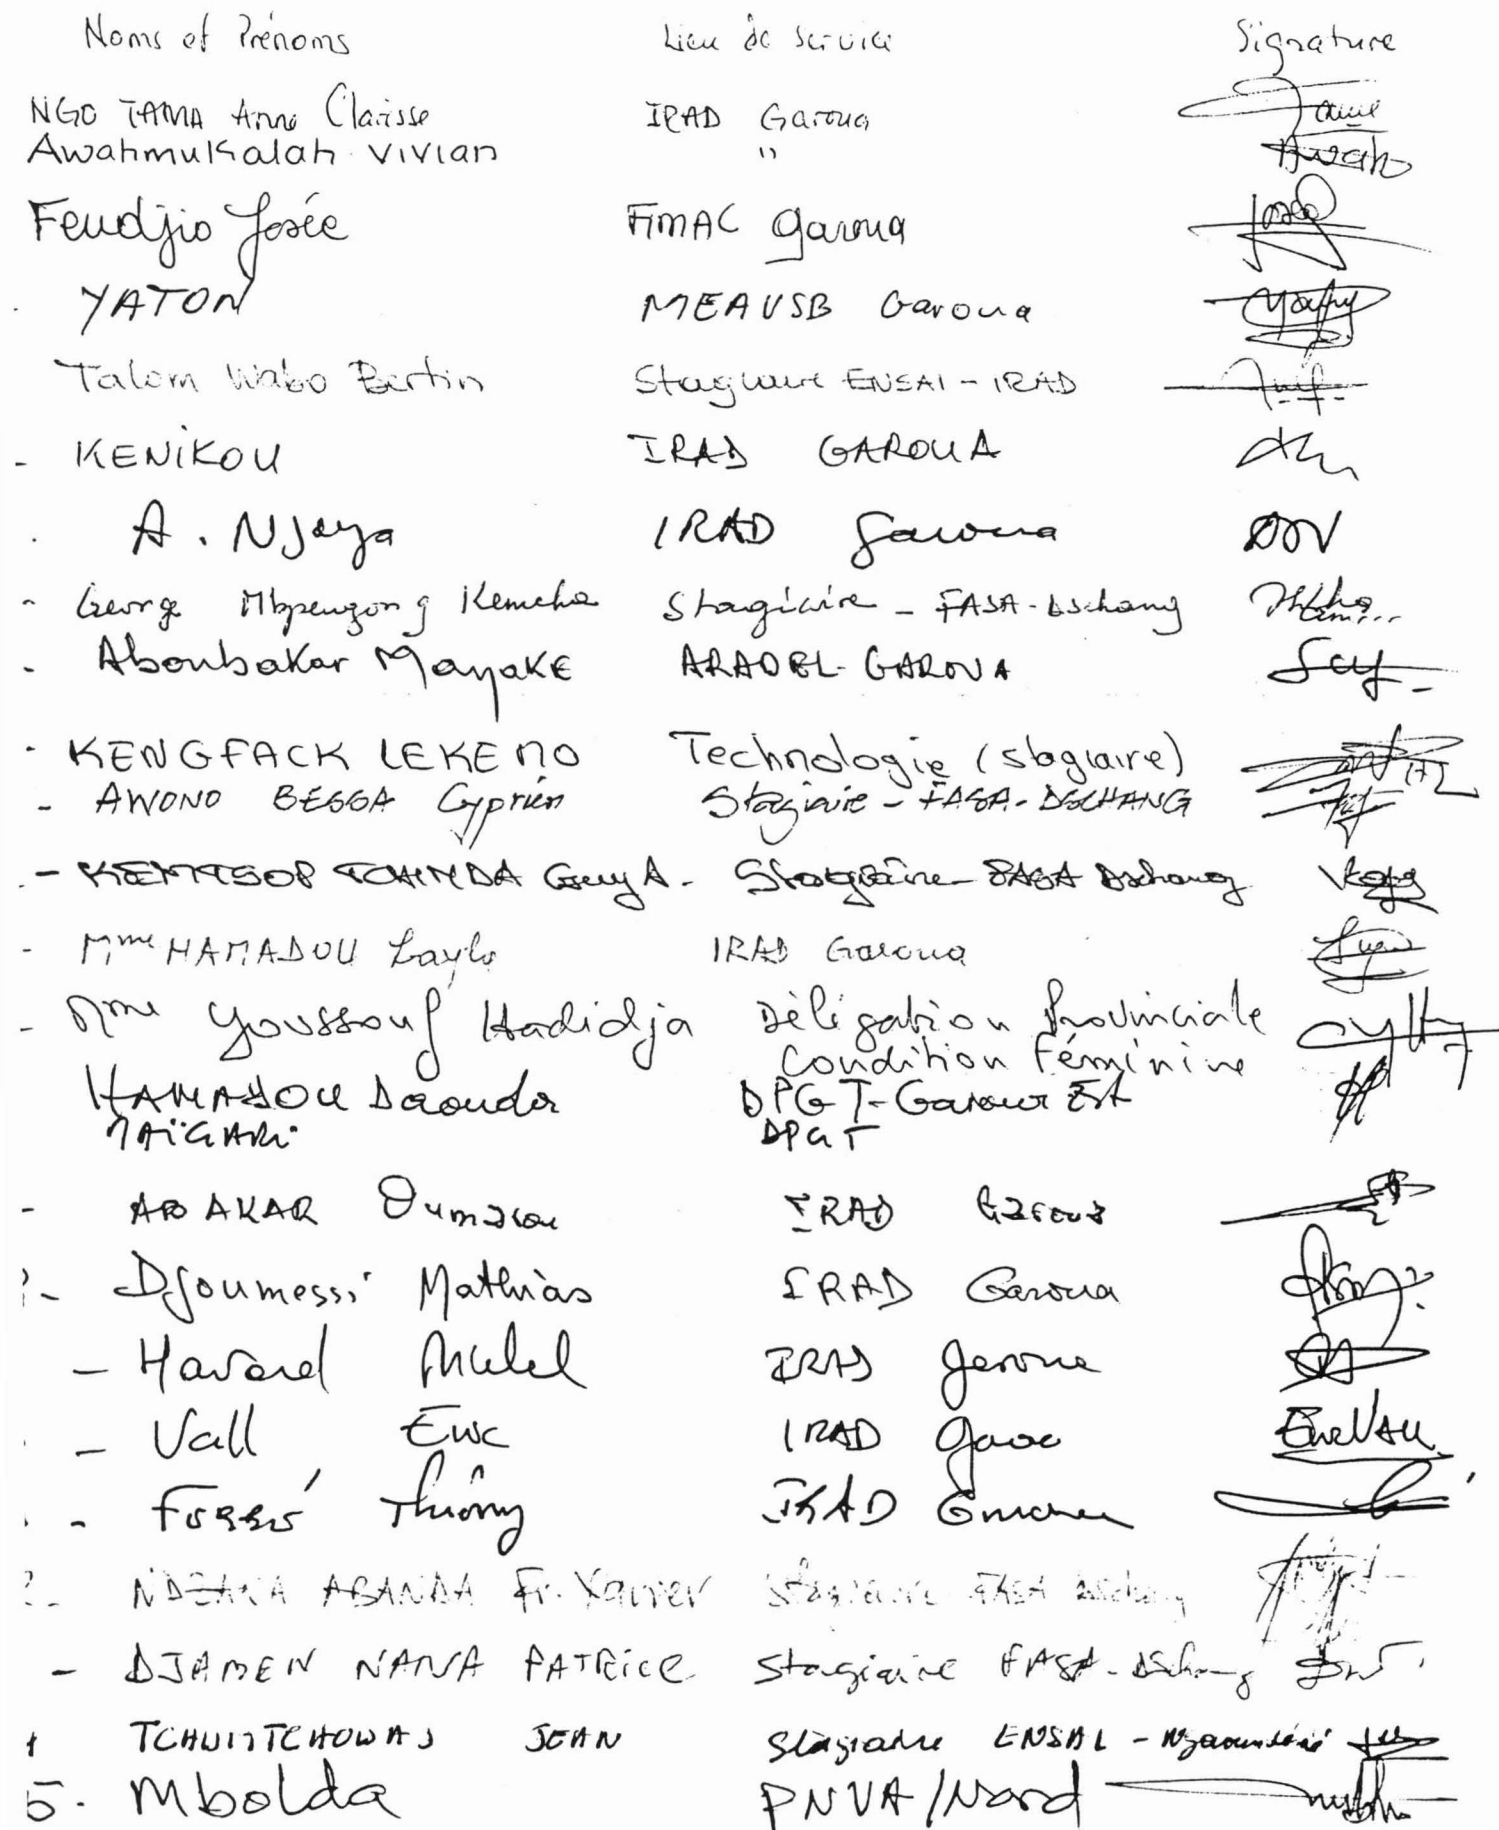 Noms et Prénoms Lieu de Service Signature
NGO TAMA Anne Clarisse IRAD Garoua
Awahmukalah Vivian "
Feudjio Josée FIMAC Garoua
YATON MEAVSB Garoua
Talom Wabo Bertin Stagiaire ENSAI - IRAD
- KENIKOU IRAD GAROUA
A. Njoya IRAD Garoua
- George Mbpengong Kemcha Stagiaire - FASA - Dschang
- Aboubakar Mayake ARADEL - GAROUA
- KENGFACK LEKEMO Technologie (stagiaire)
- AWONO BESSA Cyprien Stagiaire - FASA - DSCHANG
- KEMTSOP TCHINDA Guy A. Stagiaire - FASA Dschang
- Mme HAMADOU Layla IRAD Garoua
- Mme Youssouf Hadidja Délégation Provinciale
Condition Féminine
HAMADOU Daouda DPGT - Garoua Est
MAÏGARI DPGT
- ABAKAR Oumarou IRAD Garoua
- Djoumessi Mathias IRAD Garoua
- Havard Michel IRAD Garoua
- Vall Eric IRAD Eric Vall
- Thierry IRAD Garoua
ABANDA Fr. Xavier Stagiaire FASA Dschang
- DJAMEN NANA PATRICE Stagiaire FASA - Dschang
JEAN Stagiaire ENSAI - Ngaoundéré
5. Mbolda PNVA/Nord